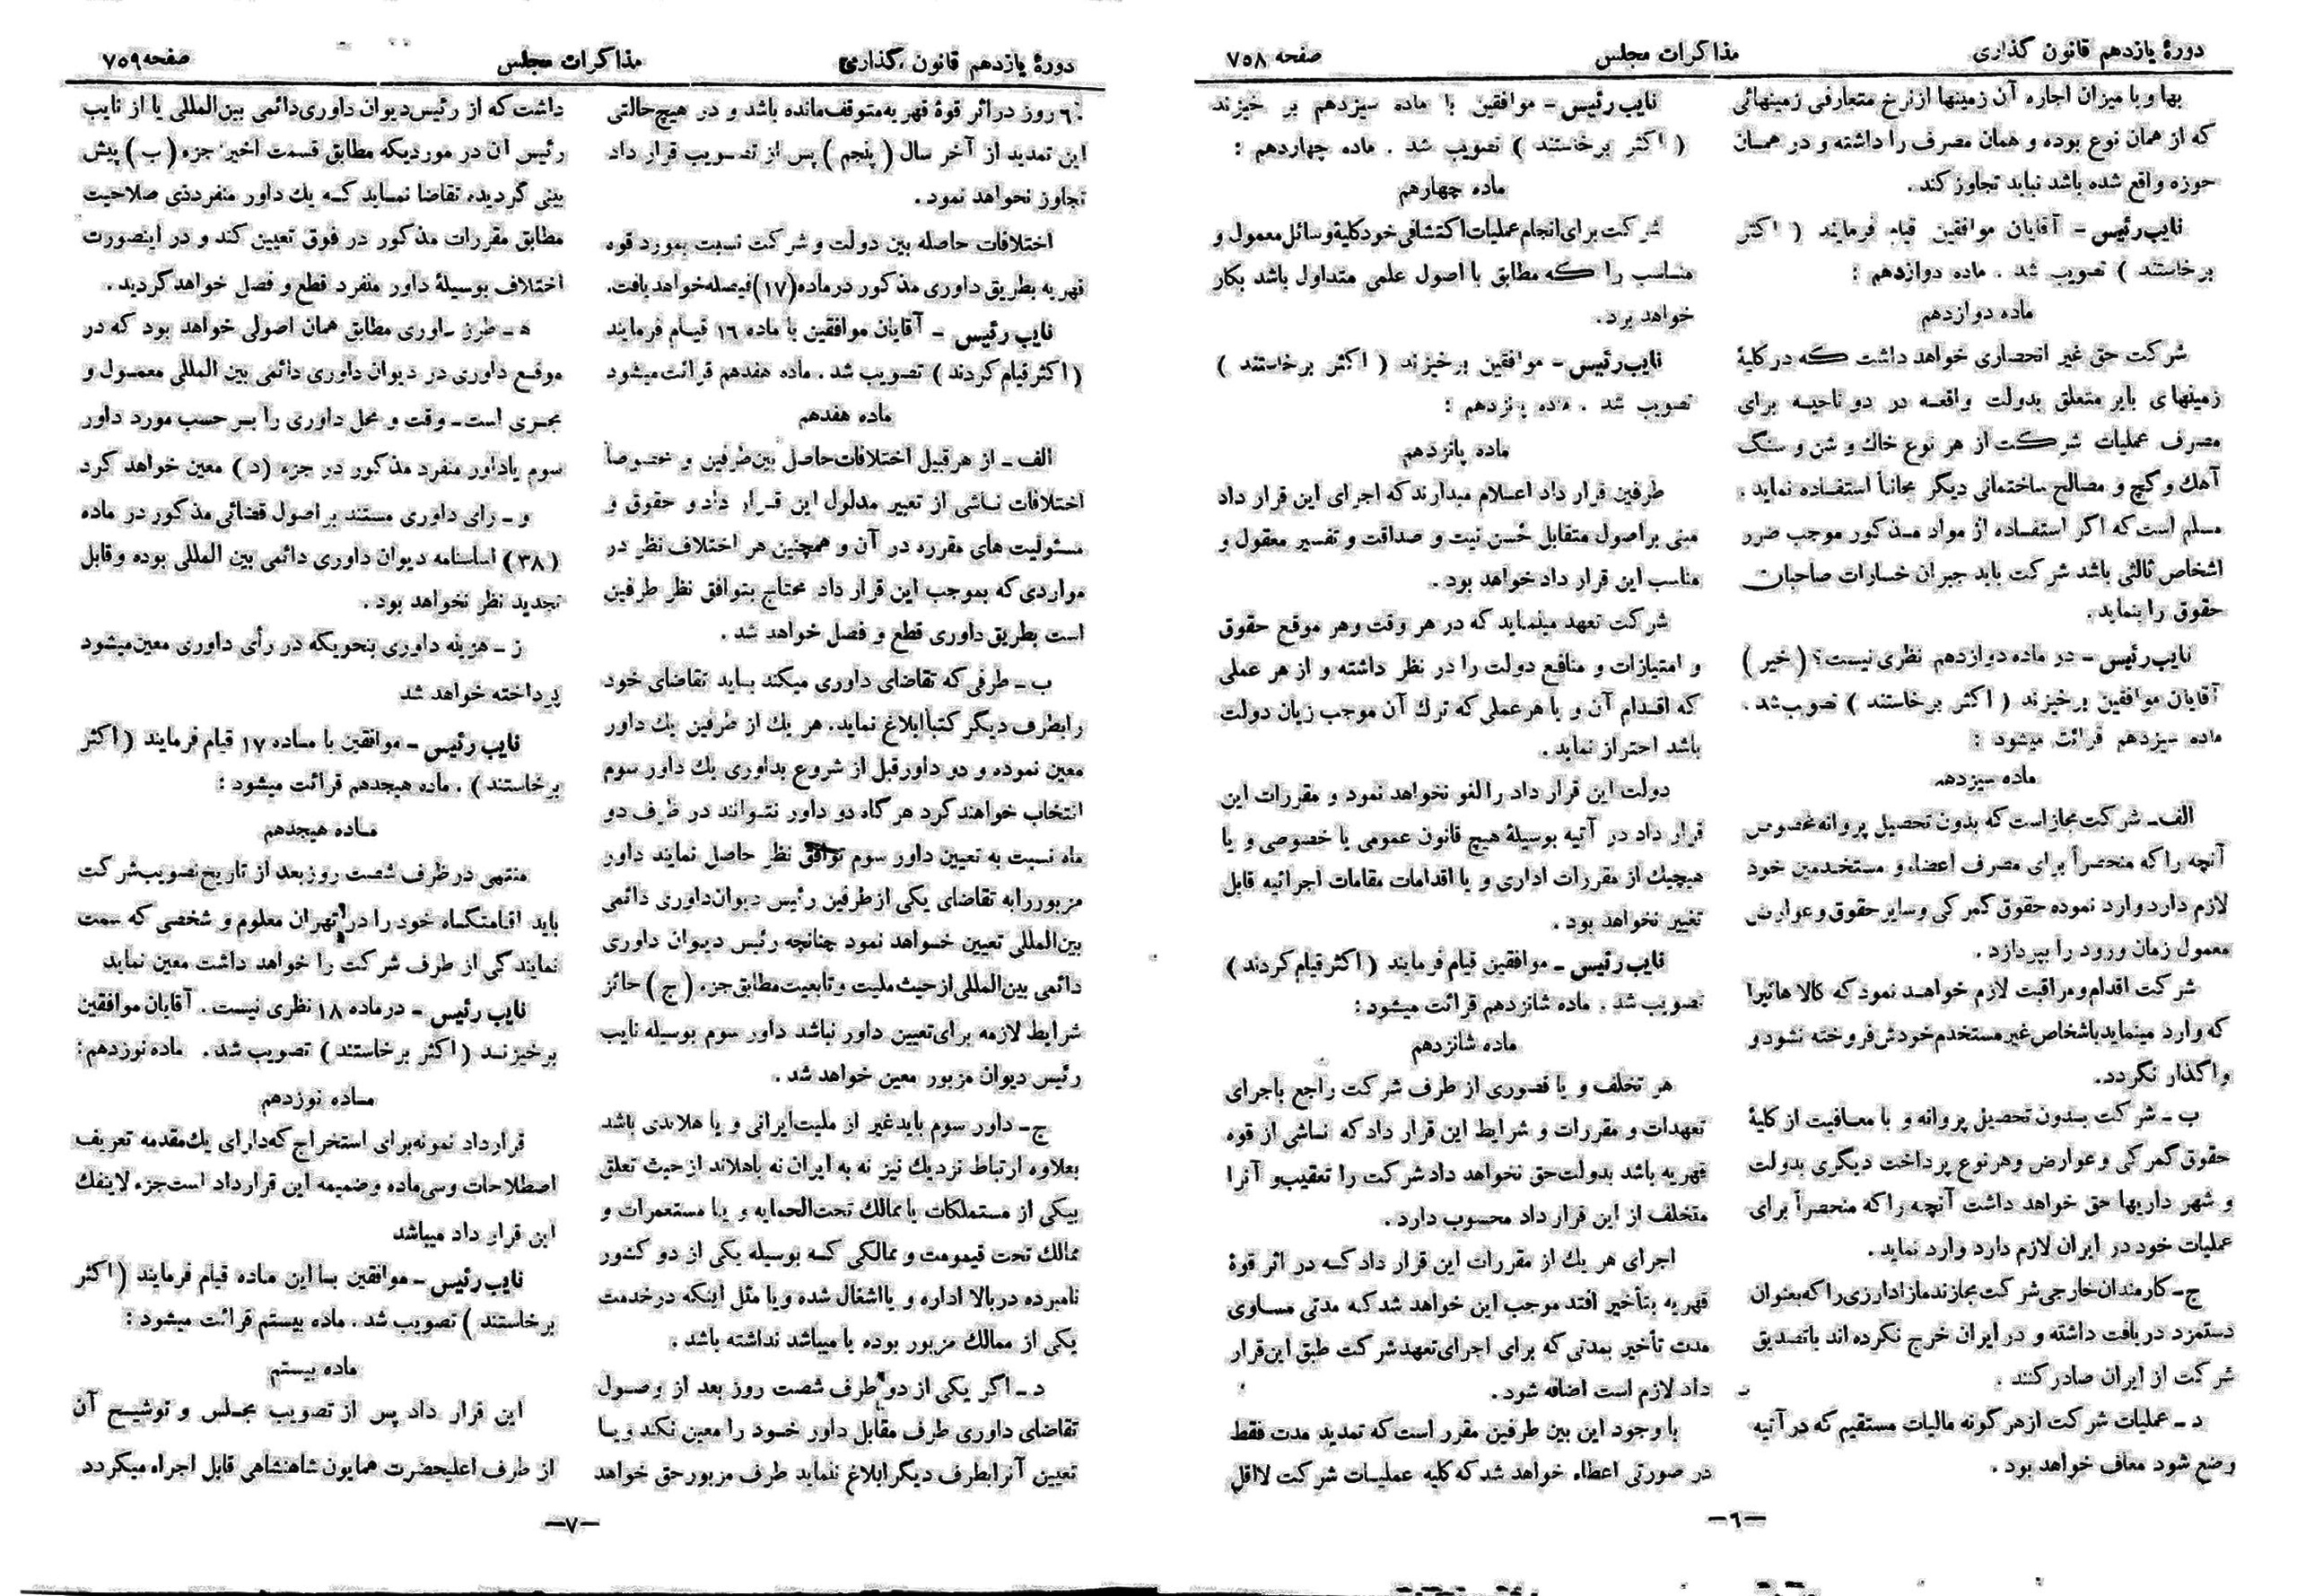 دورهٔ یازدهم قانون گذاری
مذاکرات مجلس
صفحه ۷۵۸
بها و یا میزان اجاره آن زمینها از نرخ متعارفی زمینهائی
که از همان نوع بوده و همان مصرف را داشته و در همان
حوزه واقع شده باشد نباید تجاوز کند.
نایب رئیس – آقایان موافقین قیام فرمایند ( اکثر
برخاستند ) تصویب شد . ماده دوازدهم :
ماده دوازدهم
شرکت حق غیر انحصاری خواهد داشت که در کلیهٔ
زمینهای بایر متعلق بدولت واقعه در دو ناحیه برای
مصرف عملیات شرکت از هر نوع خاك و شن و سنگ
آهك و گچ و مصالح ساختمانی دیگر مجاناً استفاده نماید .
مسلم است که اگر استفاده از مواد مذکور موجب ضرر
اشخاص ثالثی باشد شرکت باید جبران خسارات صاحبان
حقوق را بنماید.
نایب رئیس – در ماده دوازدهم نظری نیست؟ ( خیر )
آقایان موافقین برخیزند ( اکثر برخاستند ) تصویب شد .
ماده سیزدهم قرائت میشود :
ماده سیزدهم
الف – شرکت مجاز است که بدون تحصیل پروانه مخصوص
آنچه را که منحصراً برای مصرف اعضاء و مستخدمین خود
لازم دارد وارد نموده حقوق گمرکی و سایر حقوق و عوارض
معمول زمان ورود را بپردازد .
شرکت اقدام و مراقبت لازم خواهد نمود که کالا هائیرا
که وارد مینماید باشخاص غیر مستخدم خودش فروخته نشود و
واگذار نگردد.
ب – شرکت بدون تحصیل پروانه و با معافیت از کلیهٔ
حقوق گمرکی و عوارض و هر نوع پرداخت دیگری بدولت
و شهر داریها حق خواهد داشت آنچه را که منحصراً برای
عملیات خود در ایران لازم دارد وارد نماید .
ج – کارمندان خارجی شرکت مجازند مازاد ارزی را که بعنوان
دستمزد دریافت داشته و در ایران خرج نکرده اند با تصدیق
شرکت از ایران صادر کنند .
د – عملیات شرکت از هر گونه مالیات مستقیم که در آتیه
وضع شود معاف خواهد بود .
نایب رئیس – موافقین با ماده سیزدهم بر خیزند
( اکثر برخاستند ) تصویب شد . ماده چهاردهم :
ماده چهارهم
شرکت برای انجام عملیات اکتشافی خود کلیهٔ وسائل معمول و
مناسب را که مطابق با اصول علمی متداول باشد بکار
خواهد برد.
نایب رئیس – موافقین برخیزند ( اکثر برخاستند )
تصویب شد . ماده پانزدهم :
ماده پانزدهم
طرفین قرار داد اعلام میدارند که اجرای این قرار داد
مبنی بر اصول متقابل حُسن نیت و صداقت و تفسیر معقول و
مناسب این قرار داد خواهد بود .
شرکت تعهد مینماید که در هر وقت و هر موقع حقوق
و امتیازات و منافع دولت را در نظر داشته و از هر عملی
که اقدام آن و یا هر عملی که ترك آن موجب زیان دولت
باشد احتراز نماید .
دولت این قرار داد را لغو نخواهد نمود و مقررات این
قرار داد در آتیه بوسیلهٔ هیچ قانون عمومی یا خصوصی و یا
هیچیك از مقررات اداری و یا اقدامات مقامات اجرائیه قابل
تغییر نخواهد بود .
نایب رئیس – موافقین قیام فرمایند ( اکثر قیام کردند )
تصویب شد . ماده شانزدهم قرائت میشود :
ماده شانزدهم
هر تخلف و یا قصوری از طرف شرکت راجع باجرای
تعهدات و مقررات و شرایط این قرار داد که ناشی از قوه
قهریه باشد بدولت حق نخواهد داد شرکت را تعقیب و آنرا
متخلف از این قرار داد محسوب دارد .
اجرای هر یك از مقررات این قرار داد که در اثر قوهٔ
قهریه بتأخیر افتد موجب این خواهد شد که مدتی مساوی
مدت تأخیر بمدتی که برای اجرای تعهد شرکت طبق این قرار
داد لازم است اضافه شود .
با وجود این بین طرفین مقرر است که تمدید مدت فقط
در صورتی اعطاء خواهد شد که کلیه عملیات شرکت لااقل
–٦–
دورهٔ یازدهم قانون گذاری
مذاکرات مجلس
صفحه ۷۵۹
٦۰ روز در اثر قوهٔ قهریه متوقف مانده باشد و در هیچ حالتی
این تمدید از آخر سال ( پنجم ) پس از تصویب قرار داد
تجاوز نخواهد نمود .
اختلافات حاصله بین دولت و شرکت نسبت بمورد قوه
قهریه بطریق داوری مذکور در ماده (۱۷) فیصله خواهد یافت.
نایب رئیس – آقایان موافقین با ماده ۱٦ قیام فرمایند
( اکثر قیام کردند ) تصویب شد . ماده هفدهم قرائت میشود
ماده هفدهم
الف – از هر قبیل اختلافات حاصل بین طرفین و خصوصاً
اختلافات ناشی از تعبیر مدلول این قرار داد و حقوق و
مسئولیت های مقرره در آن و همچنین هر اختلاف نظر در
مواردی که بموجب این قرار داد محتاج بتوافق نظر طرفین
است بطریق داوری قطع و فصل خواهد شد .
ب – طرفی که تقاضای داوری میکند باید تقاضای خود
را بطرف دیگر کتباً ابلاغ نماید. هر یك از طرفین یك داور
معین نموده و دو داور قبل از شروع بداوری یك داور سوم
انتخاب خواهند کرد هر گاه دو داور نتوانند در ظرف دو
ماه نسبت به تعیین داور سوم توافق نظر حاصل نمایند داور
مزبور را به تقاضای یکی از طرفین رئیس دیوان داوری دائمی
بین‌المللی تعیین خواهد نمود چنانچه رئیس دیوان داوری
دائمی بین‌المللی از حیث ملیت و تابعیت مطابق جزء ( ج ) حائز
شرایط لازمه برای تعیین داور نباشد داور سوم بوسیله نایب
رئیس دیوان مزبور معین خواهد شد .
ج – داور سوم باید غیر از ملیت ایرانی و یا هلاندی باشد
بعلاوه ارتباط نزدیك نیز نه به ایران نه باهلاند از حیث تعلق
بیکی از مستملکات یا ممالك تحت‌الحمایه و یا مستعمرات و
ممالك تحت قیمومت و ممالکی که بوسیله یکی از دو کشور
نامبرده در بالا اداره و یا اشغال شده و یا مثل اینکه در خدمت
یکی از ممالك مزبور بوده یا میباشد نداشته باشد .
د – اگر یکی از دو طرف شصت روز بعد از وصول
تقاضای داوری طرف مقابل داور خود را معین نکند و یا
تعیین آنرا بطرف دیگر ابلاغ ننماید طرف مزبور حق خواهد
داشت که از رئیس دیوان داوری دائمی بین‌المللی یا از نایب
رئیس آن در موردیکه مطابق قسمت اخیر جزء ( ب ) پیش
بینی گردیده تقاضا نماید که یك داور منفرد ذی صلاحیت
مطابق مقررات مذکور در فوق تعیین کند و در اینصورت
اختلاف بوسیلهٔ داور منفرد قطع و فصل خواهد گردید .
ه – طرز داوری مطابق همان اصولی خواهد بود که در
موقع داوری در دیوان داوری دائمی بین المللی معمول و
مجری است – وقت و محل داوری را بر حسب مورد داور
سوم یا داور منفرد مذکور در جزء (د) معین خواهد کرد
و – رای داوری مستند بر اصول قضائی مذکور در ماده
(۳۸) اساسنامه دیوان داوری دائمی بین المللی بوده و قابل
تجدید نظر نخواهد بود .
ز – هزینه داوری بنحویکه در رأی داوری معین میشود
پرداخته خواهد شد
نایب رئیس – موافقین با ماده ۱۷ قیام فرمایند ( اکثر
برخاستند ) . ماده هیجدهم قرائت میشود :
ماده هیجدهم
منتهی در ظرف شصت روز بعد از تاریخ تصویب شرکت
باید اقامتگاه خود را در تهران معلوم و شخصی که سمت
نمایندگی از طرف شرکت را خواهد داشت معین نماید
نایب رئیس – در ماده ۱۸ نظری نیست . آقایان موافقین
برخیزند ( اکثر برخاستند ) تصویب شد . ماده نوزدهم:
ماده نوزدهم
قرارداد نمونه برای استخراج که دارای یك مقدمه تعریف
اصطلاحات و سی ماده و ضمیمه این قرارداد است جزء لاینفك
این قرار داد میباشد
نایب رئیس – موافقین با این ماده قیام فرمایند ( اکثر
برخاستند ) تصویب شد . ماده بیستم قرائت میشود :
ماده بیستم
این قرار داد پس از تصویب مجلس و توشیح آن
از طرف اعلیحضرت همایون شاهنشاهی قابل اجراء میگردد
–۷–